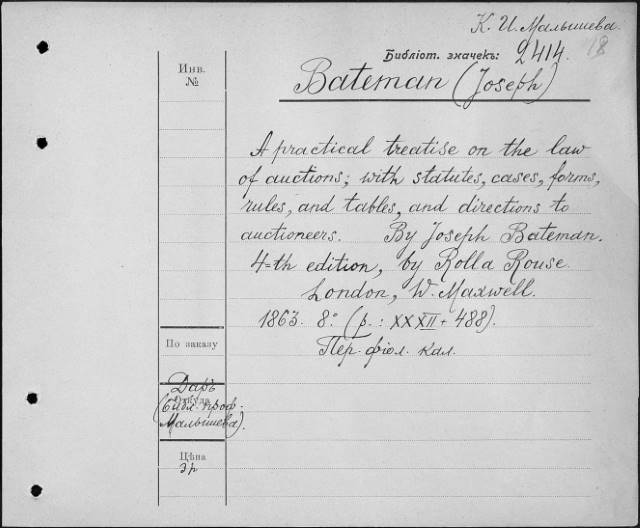 К. И. Малышева.
18
Библіот. значекъ: 2414.
Инв.
№
Bateman (Joseph)
A practical treatise on the law
of auctions; with statutes, cases, forms,
rules, and tables, and directions to
auctioneers. By Joseph Bateman.
4-th edition, by Rolla Rouse.
London, W. Maxwell.
1863. 8° (p.: XXXII + 488).
Пер. фіол. кал.
По заказу
Даръ
Откуда
(библ. проф.
Малышева).
Цѣна
3р